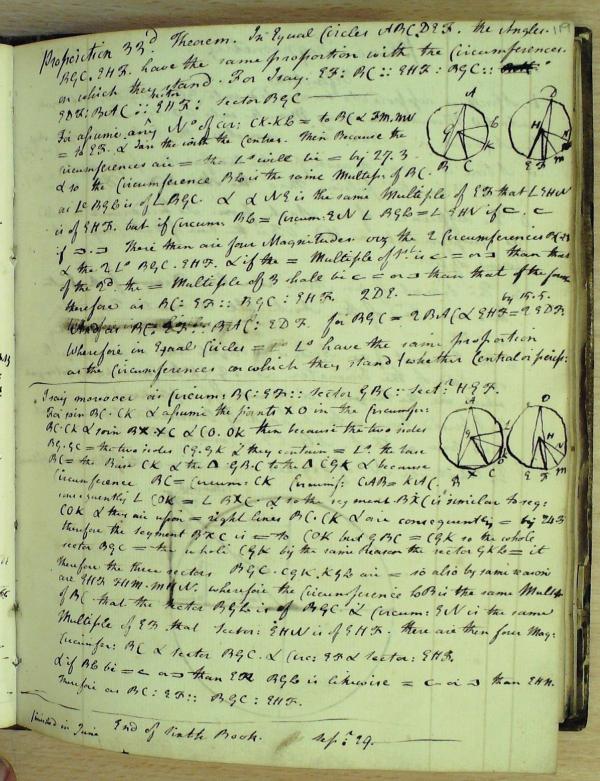 119
Proposition 33d Theorem. In Equal Circles ABC, DEF. the Angles.
BGC. EHF. have the same proportion with the Circumferences.
on which they stand. For I say. EF: BC:: EHF: BGC::
EDF: BAC :: EHF: sector BGC
For assume any No of cir: CK.KL = to BC & FM.MN
= to EF. & Join the with the Centres. Then Because the
Circumferences are = the Ls will be = by 27.3.
& so the Circumference BL is the same Multiple of BC.
as Ls BGL is of LBGC. & & NE is the same Multiple of EF that LEHN
is of EHF. but if Circum: BL = Circum: EN L BGL = L EHN if ⊏. ⊏
if ⊐. ⊐ There then are four Magnitudes viz the 2 Circumferences
& the 2 Ls BGC. EHF. & if the = Multiple of 1st is ⊏ = or ⊐ than that
of the 2d. the = Multiple of 3 shall be ⊏ = or ⊐ than that of the four
therefore as BC: EF:: BGC: EHF. QDE.
by 15.5.
And as BC: EF:: BAC: EDF. for BGC = 2BAC & EHF = 2EDF.
Wherefore in Equal Circles = Ls have the same proportion
as the Circumferences on which they stand (whether Central or periph:
I say moreover as Circum: BC: EF:: Sector GBC: Sectr HEF.
For join BC. CK & assume the points X O in the Circumfer:
BC. CK & join BX. XC & CO. OK then because the two sides
BG. GC = the two sides CG. GK & they contain = Ls. the base
BC = the Base CK & the Δ GBC to the Δ CGK & because
Circumference BC = Circum: CK Circumf: CAB = KAC.
consequently L COK = L BXC & so the segment BXC is similar to seg:
COK & they are upon = right lines BC. CK & are consequently = by 24.3
therefore the segment BXC is = to COK but GBC = CGK so the whole
sector BGC = the whole CGK by the same Reason the sector GKL = it
therefore the three sectors BGC. CGK. KGL are = so also by same reason
are EHF FHM. MHN. wherefore the Circumference LB is the same Mult:
of BC that the sector BGL is of BGC. & Circum: EN is the same
Multiple of EF that Sector: EHN is of EHF. there are then four Mag:
Circumfer: BC & sector BGC. & Circ: EF & sector: EHF.
& if BL be = ⊏ or ⊐ than EN BGL is likewise = ⊏ or ⊐ than EHN.
Therefore as BC: EF:: BGC: EHF.
finished in June End of Sixth Book. Sepr 29.